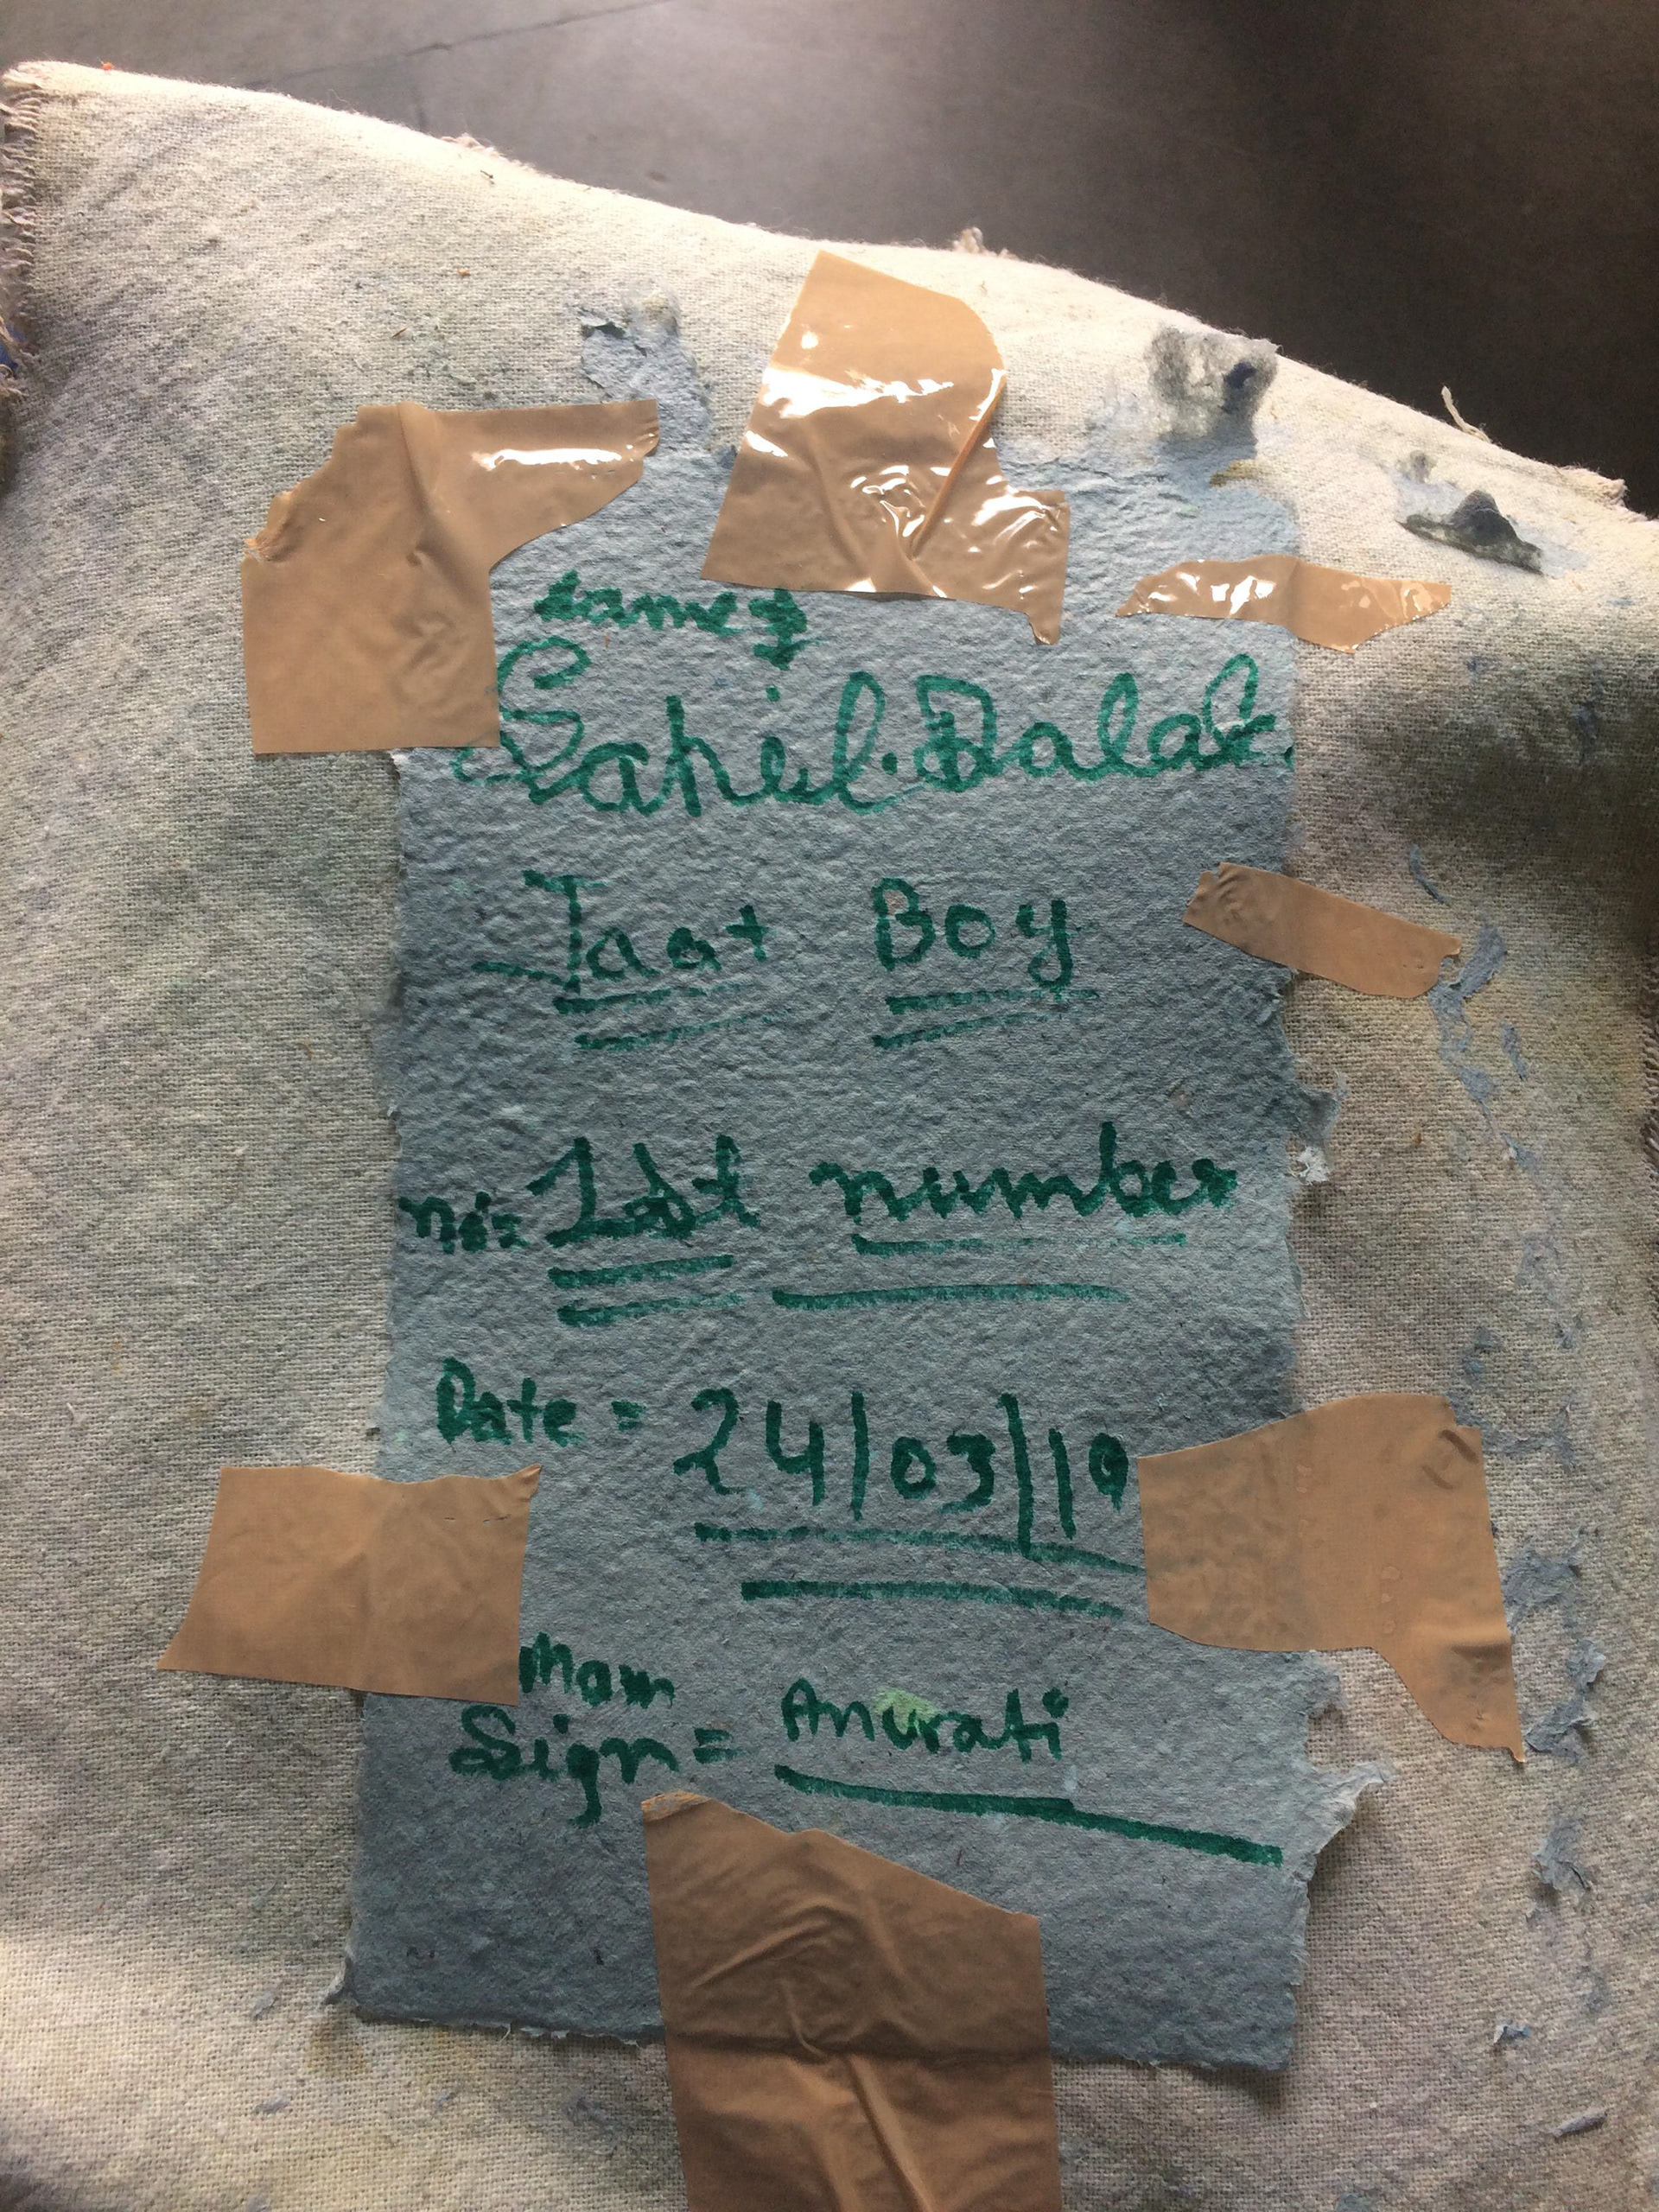 name
Sahil.Dalal
Jaat Boy
no= Last number
Date = 24/03/19
Mam
Sign = Anurati